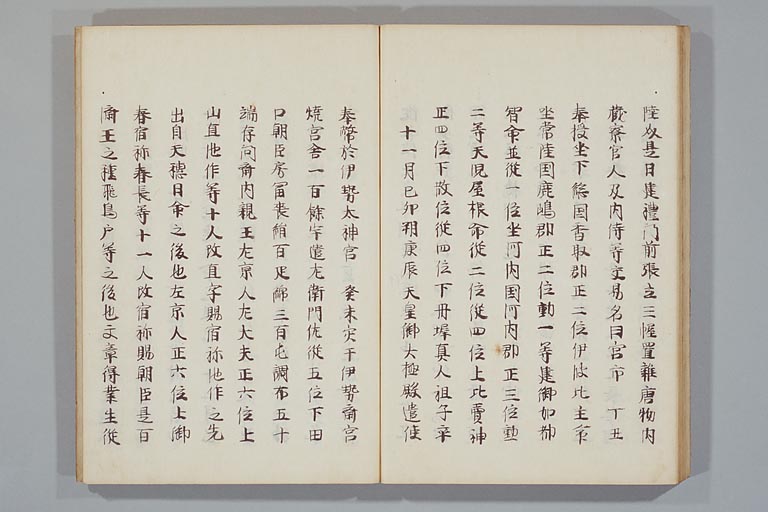 陸奴是日建禮門前張立三幄置雜唐物内
蔵寮官人及内侍等交易名曰宮市丁丑
奉授坐下総国香取郡正二位伊波比主命
坐常陸国鹿嶋郡正二位勳一等建御加都
智命並從一位坐河内国河内郡正三位勳
二等天児屋根命從二位從四位上比賣神
正四位下散位從四位下丹墀真人祖子卒
十一月己卯朔庚辰天皇御大極殿遣使
奉幣於伊勢太神宮癸未災于伊勢齋宮
燒宮舎一百餘宇遣左衛門佐從五位下田
口朝臣房冨賫絹百疋綿三百屯調布五十
端存問齋内親王左京人左大夫正六位上
山直池作等十人改直字賜宿祢池作之先
出自天穂日命之後也左京人正六位上御
春宿祢春長等十一人改宿祢賜朝臣是百
濟王之種飛鳥戸等之後也文章得業生從